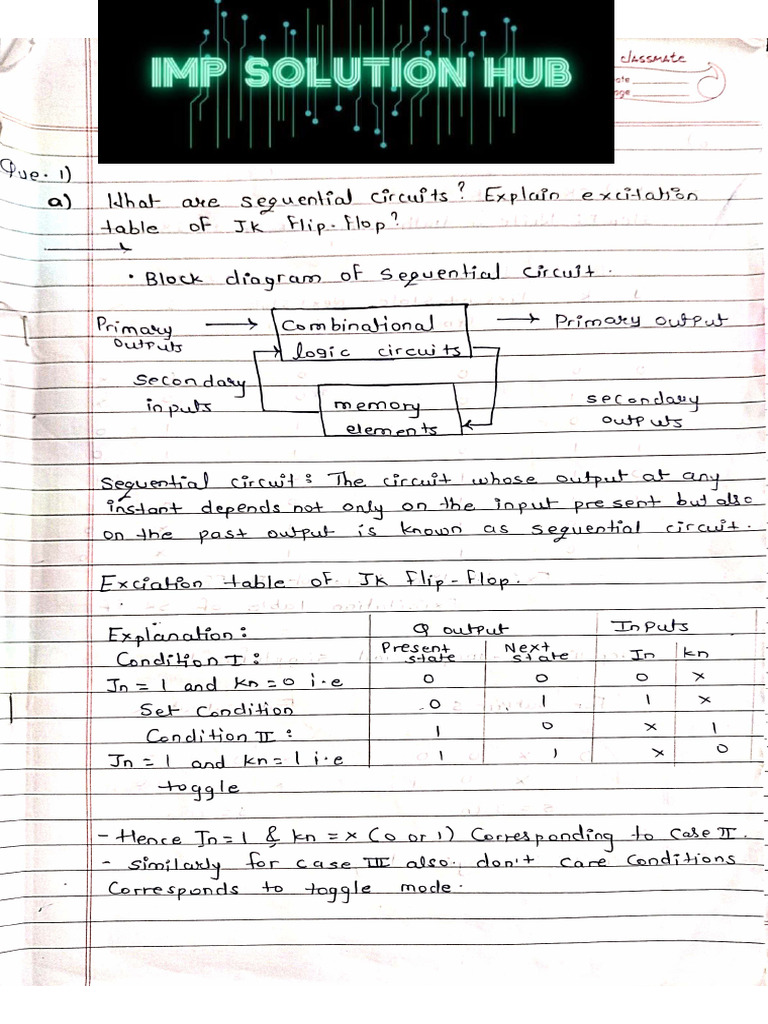 IMP SOLUTION HUB
classmate
ate
ge
Que. 1)
a) What are sequential circuits? Explain excitation
table of JK flip-flop?
• Block diagram of sequential circuit.
Primary outputs → Combinational logic circuits → Primary output
Secondary inputs
memory elements
secondary outputs
Sequential circuit: The circuit whose output at any
instant depends not only on the input present but also
on the past output is known as sequential circuit.
Exciation table of JK flip-flop.
Explanation:
Condition I:
Jn = 1 and kn = 0 i.e
Set Condition
Condition II:
Jn = 1 and kn = 1 i.e
toggle
Q output Inputs
Present state Next state Jn kn
0 0 0 x
0 1 1 x
1 0 x 1
1 1 x 0
- Hence Jn=1 & kn = x (0 or 1) Corresponding to case II.
- similarly for case III also don't care conditions
Corresponds to toggle mode.